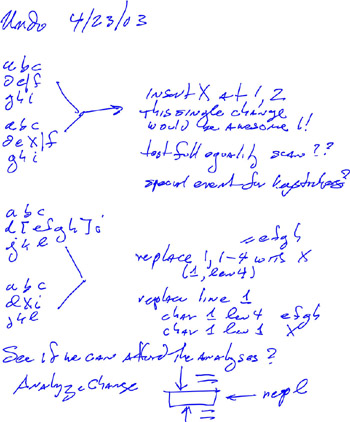 Undo 4/23/03
abc
de|f
ghi
Insert X at 1, 2
This single change
would be awesome!!
abc
deX|f
ghi
test full equality scan??
special event for keystrokes?
abc
d[efgh]i
jkl
= efgh
replace 1, 1-4 with X
(1, len 4)
abc
dXi
jkl
replace line 1
char 1 len 4 efgh
char 1 len 1 X
See if we can afford the analyses?
Analyze Change
repl